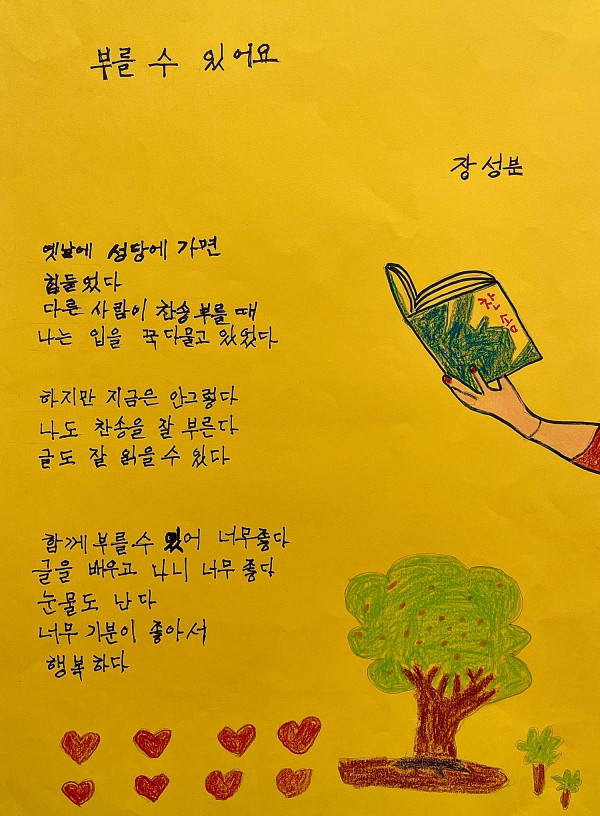 부를 수 있어요
장성분
옛날에 성당에 가면
힘들었다
다른 사람이 찬송 부를 때
나는 입을 꾹 다물고 있었다
하지만 지금은 안그렇다
나도 찬송을 잘 부른다
글도 잘 읽을 수 있다
함께 부를 수 있어 너무 좋다
글을 배우고 나니 너무 좋다
눈물도 난다
너무 기분이 좋아서
행복하다
찬
송